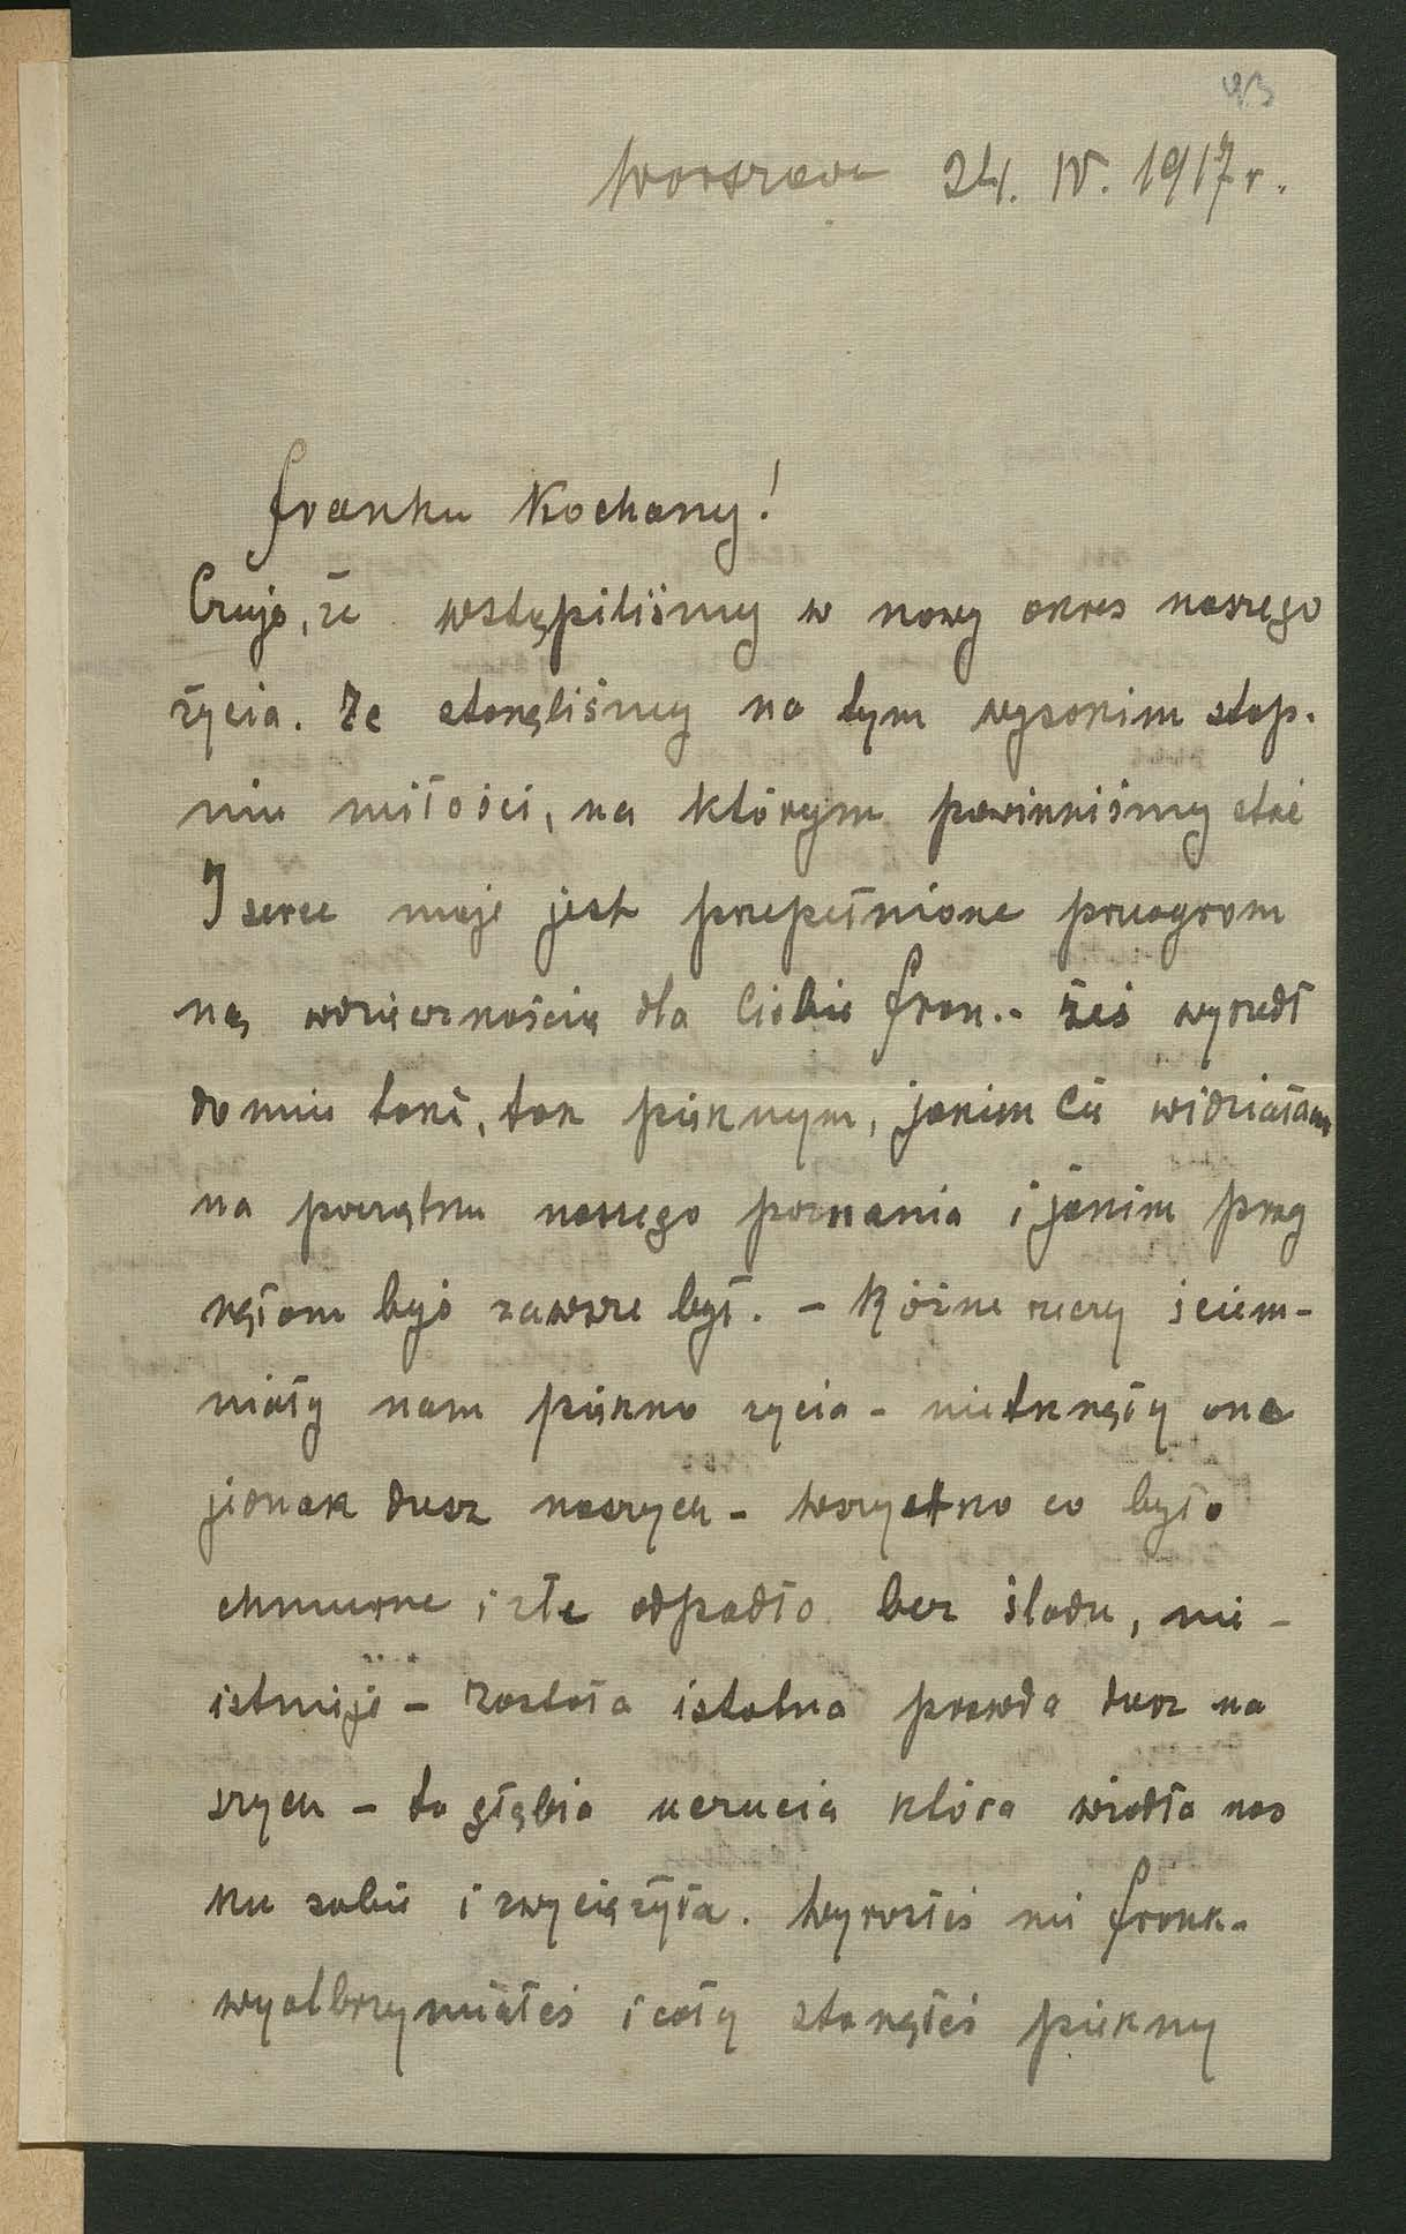 93
Warszawa 24. IV. 1917 r.
Franku Kochany!
Czuję, że wstąpiliśmy w nowy okres naszego
życia. Że stanęliśmy na tym wysokim stop-
niu miłości, na którym powinniśmy stać
I serce moje jest przepełnione przeogrom
ną wdzięcznością dla Ciebie Fran.- żeś wyszedł
do mnie taki, tak pięknym, jakim Cię widziałam
na początku naszego poznania i jakim prag
nęłam byś zawsze był. - Różne rzeczy ściem-
niały nam piękno życia - nietknęły one
jednak dusz naszych - wszystko co było
chmurne i złe odpadło bez śladu, nie -
istnieje - Została istotna prawda dusz na
szych - ta głębia uczucia która wiodła nas
ku sobie i zwyciężyła. Wyrosłeś mi Frank-
wyolbrzymiałeś i cały stanąłeś piękny